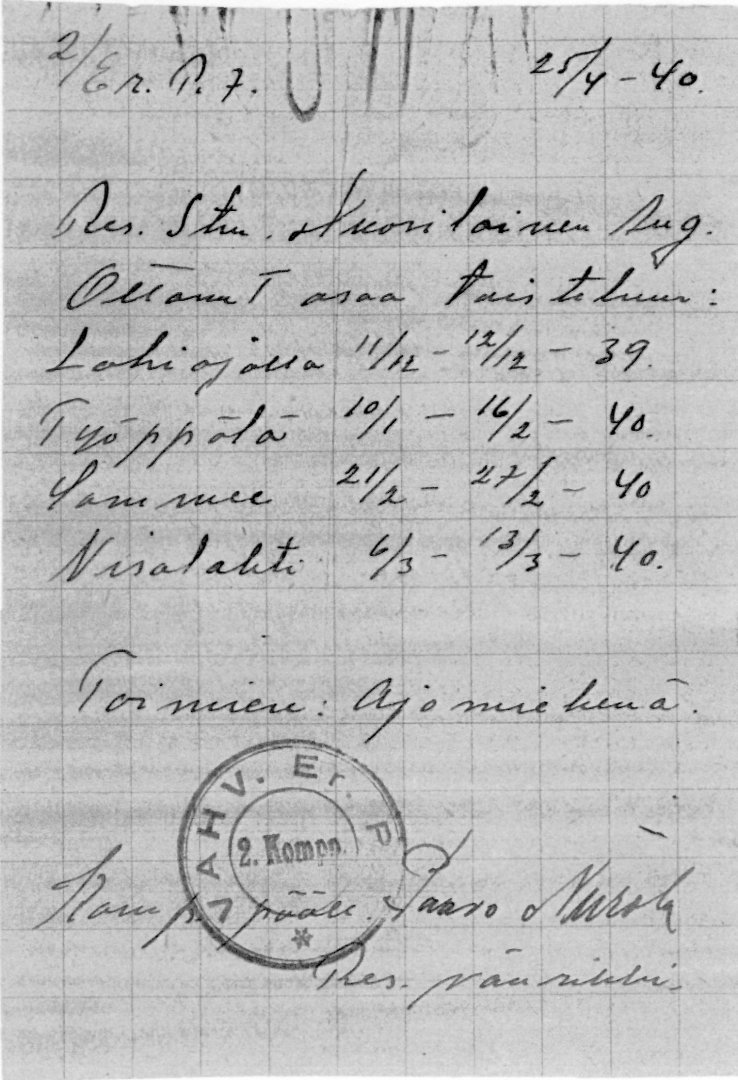 2/Er. P. 7. 25/4 - 40.
Res. Stm. Nuorilainen Aug.
Ottanut osaa taisteluun:
Lohiojalla 11/12 - 12/12 - 39.
Työppölä 10/1 - 16/2 - 40.
Sommee 21/2 - 27/2 - 40
Nisalahti 6/3 - 13/3 - 40.
Toimien: Ajomiehenä.
VAHV. Er. P.
2. Kompp.
Komp. pääll. Paavo
Res. vänrikki.